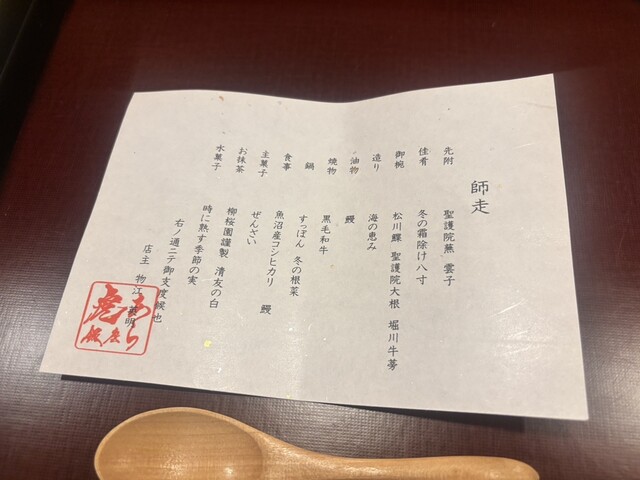 師走
先附 聖護院蕪 雲子
佳肴 冬の霜除け八寸
御椀 松川鰈 聖護院大根 堀川牛蒡
造り 海の恵み
油物 鰻
焼物 黒毛和牛
鍋 すっぽん 冬の根菜
食事 魚沼産コシヒカリ 鰻
主菓子 ぜんざい
お抹茶 柳桜園謹製 清友の白
水菓子 時に熟す季節の実
右ノ通ニテ御支度候也
店主 物江